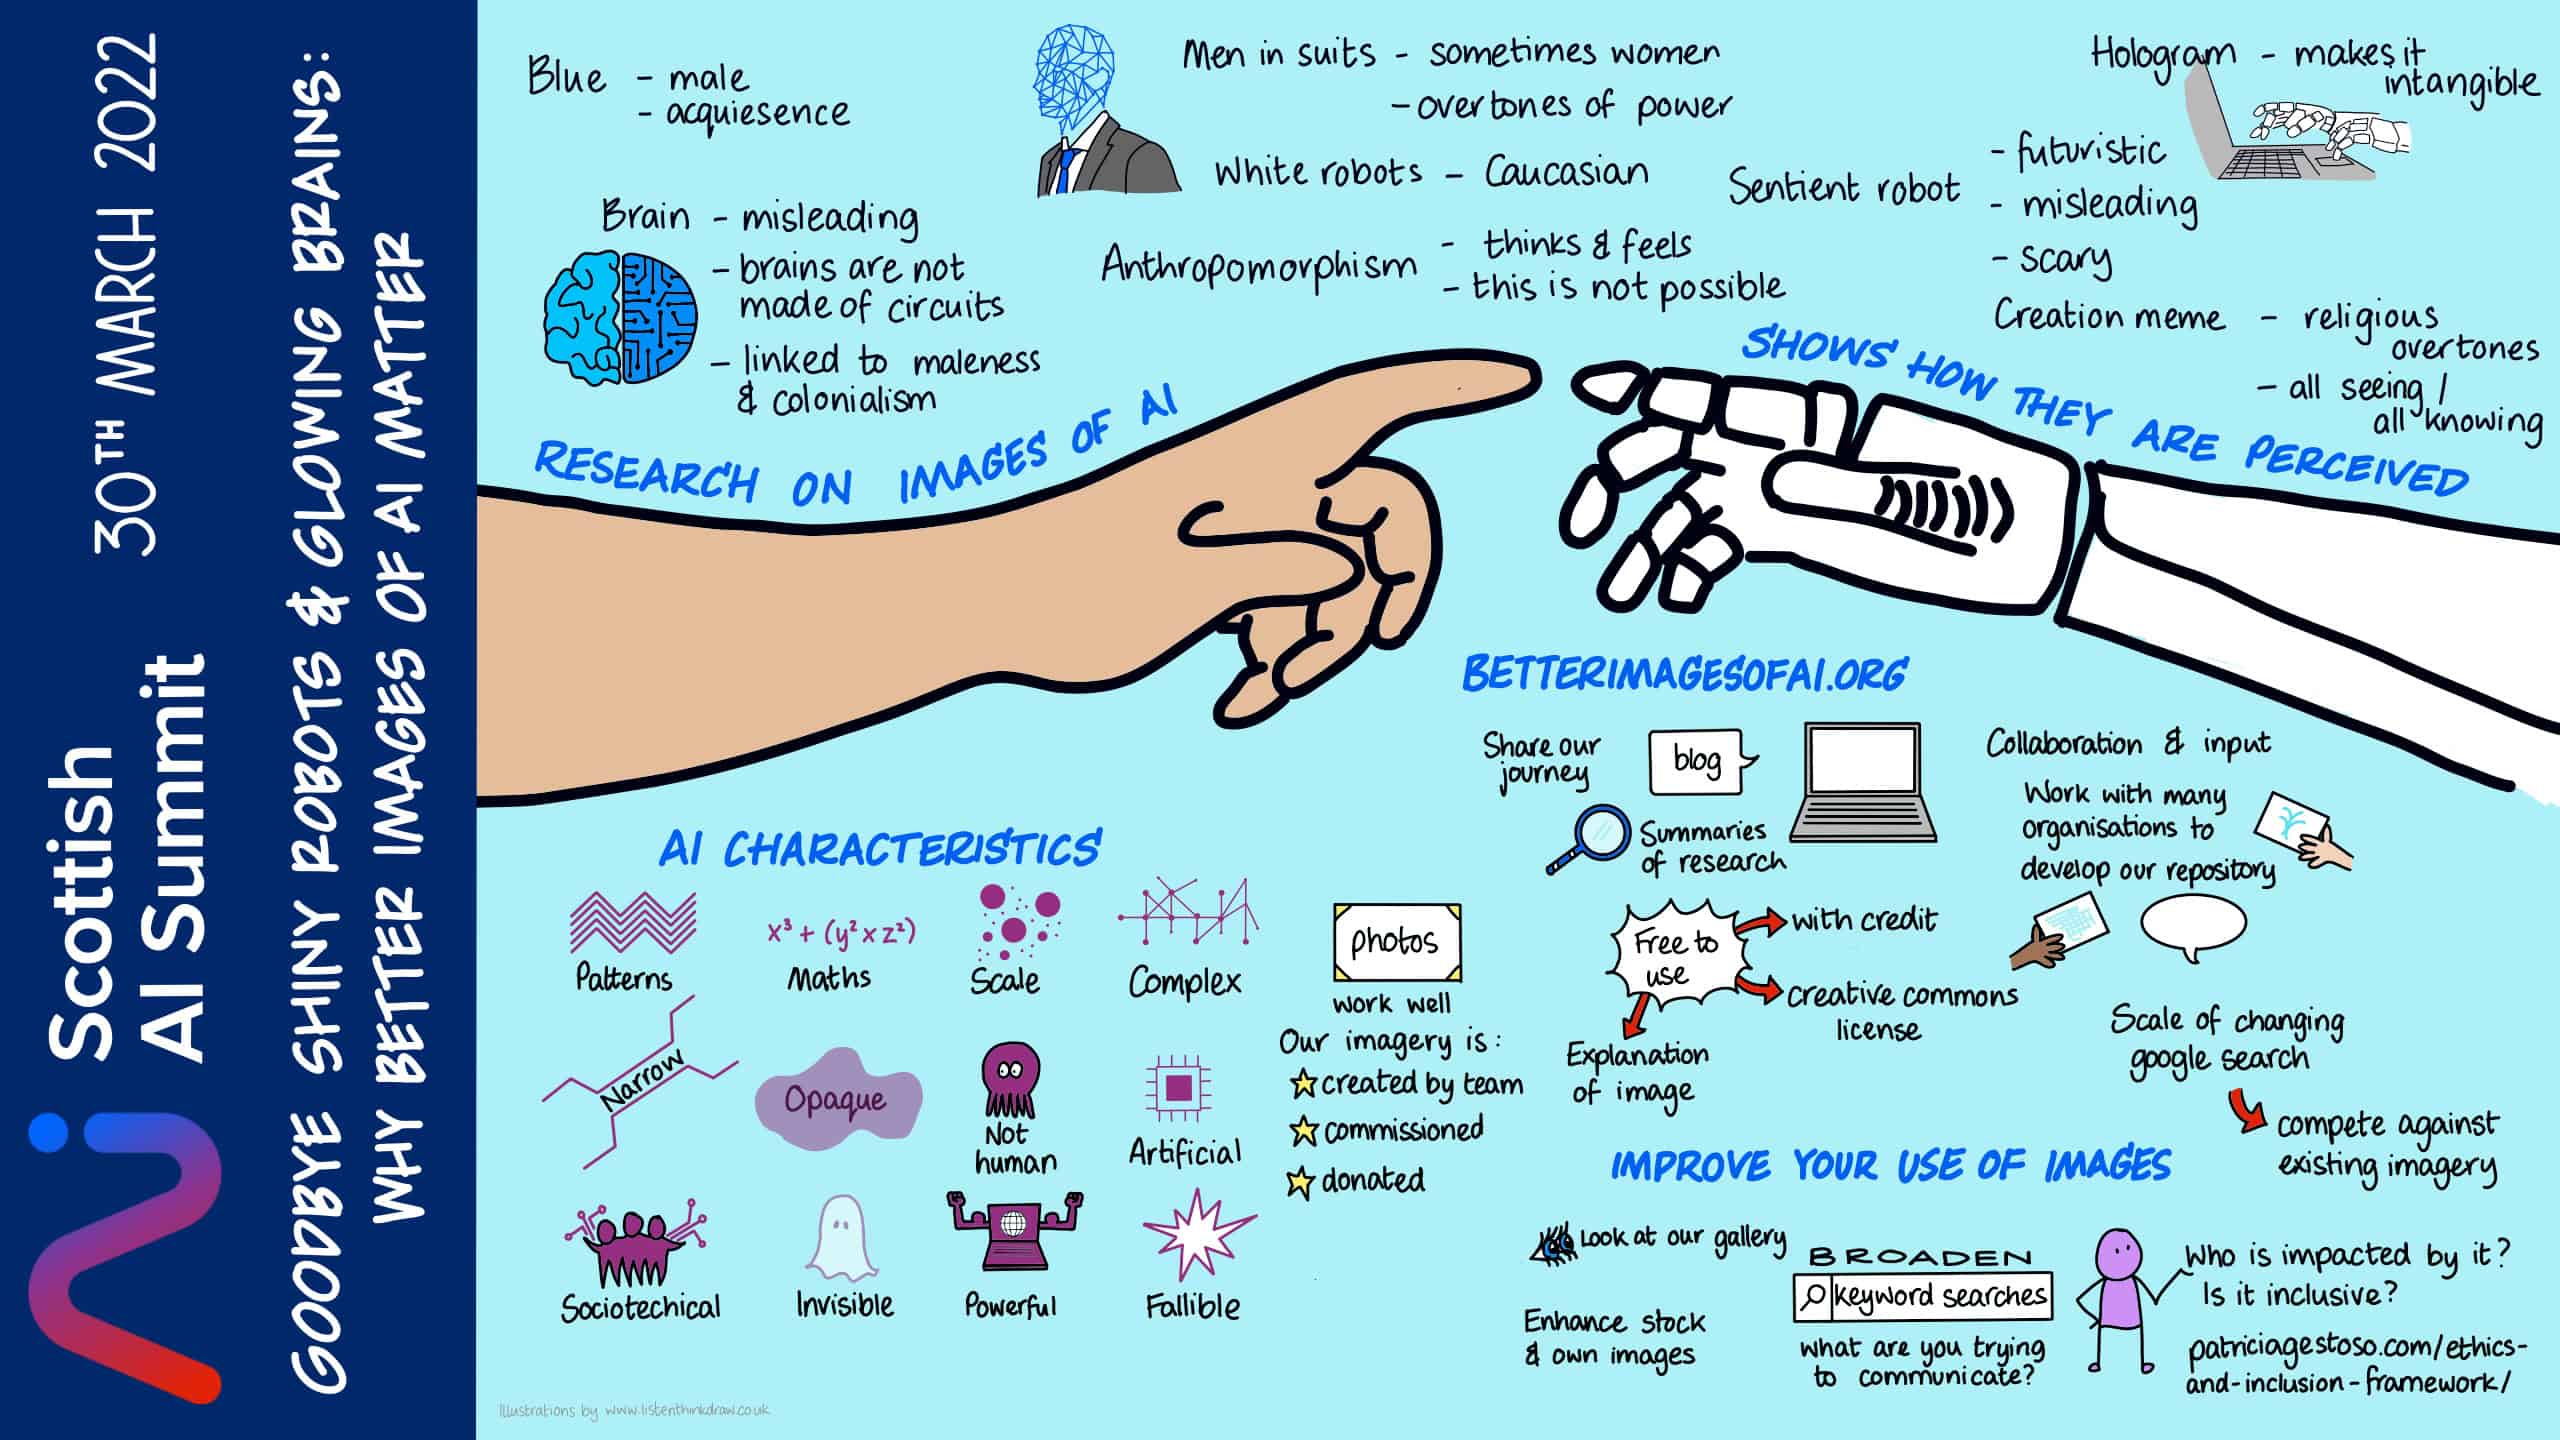 30TH MARCH 2022
Scottish
AI Summit
GOODBYE SHINY ROBOTS & GLOWING BRAINS:
WHY BETTER IMAGES OF AI MATTER
Blue - male
- acquiesence
Brain - misleading
- brains are not
made of circuits
- linked to maleness
& colonialism
Men in suits - sometimes women
- overtones of power
White robots - Caucasian
Anthropomorphism - thinks & feels
- this is not possible
Hologram - makes it
intangible
Sentient robot
- futuristic
- misleading
- scary
Creation meme - religious
overtones
- all seeing /
all knowing
RESEARCH ON IMAGES OF AI
SHOWS HOW THEY ARE PERCEIVED
AI CHARACTERISTICS
x³ + (y² x z²)
Patterns
Maths
Scale
Complex
Narrow
Opaque
Not
human
Artificial
Sociotechical
Invisible
Powerful
Fallible
photos
work well
Our imagery is:
created by team
commissioned
donated
BETTERIMAGESOFAI.ORG
Share our
journey
blog
Summaries
of research
Collaboration & input
Work with many
organisations to
develop our repository
Free to
use
with credit
creative commons
license
Explanation
of image
Scale of changing
google search
compete against
existing imagery
IMPROVE YOUR USE OF IMAGES
Look at our gallery
Enhance stock
& own images
BROADEN
keyword searches
what are you trying
to communicate?
Who is impacted by it?
Is it inclusive?
patriciagestoso.com/ethics-
and-inclusion-framework/
Illustrations by www.listenthinkdraw.co.uk